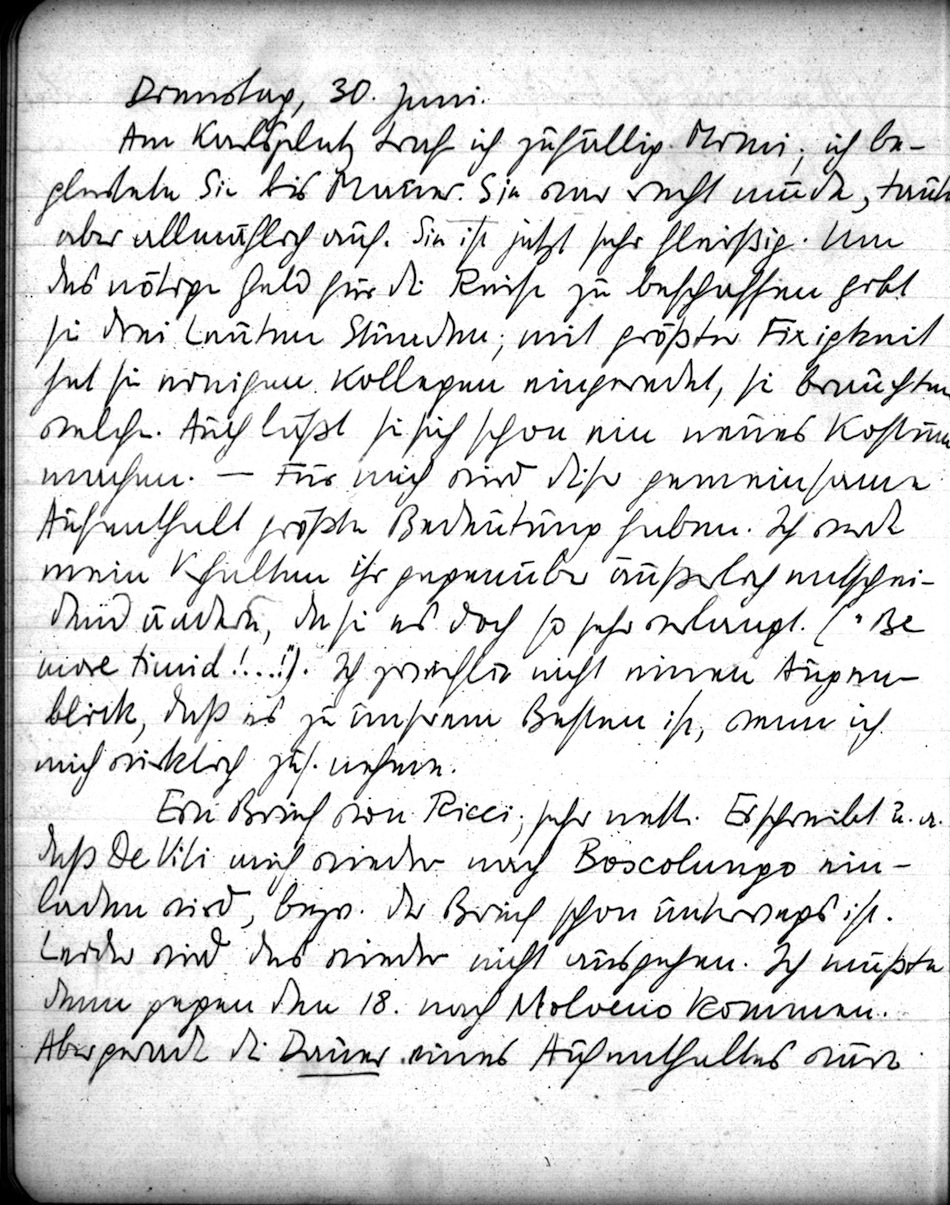 Dienstag, 30. Juni.
Am Karlsplatz traf ich zufällig Mimi; ich be-
gleitete Sie bis Mauer. Sie war recht müde, taut
aber allmählich auf. Sie ist jetzt sehr fleißig. Um
das nötige Geld für die Reise zu beschaffen gibt
sie drei Lauten Stunden; mit größter Fixigkeit
hat sie einigen Kollegen eingeredet, sie brauchten
welche. Auch läßt sie sich schon ein neues Kostüm
machen. — Für mich wird dieser gemeinsame
Aufenthalt größte Bedeutung haben. Ich werde
mein Verhalten ihr gegenüber äußerlich entschei-
dend ändern, da sie es doch so sehr verlangt. ("Be
more timid!...!"). Ich zweifle nicht einen Augen-
blick, daß es zu unserem Besten ist, wenn ich
mich wirklich zus. nehme.
Ein Brief von Ricci, sehr nett. Er schreibt u. a.
daß De Viti mich wieder nach Boscolungo ein-
laden wird, bezw. der Brief schon unterwegs ist.
Leider wird das wieder nicht ausgehen. Ich müßte
denn gegen den 18. nach Molveno kommen.
Aber gerade die Dauer eines Aufenthaltes wäre